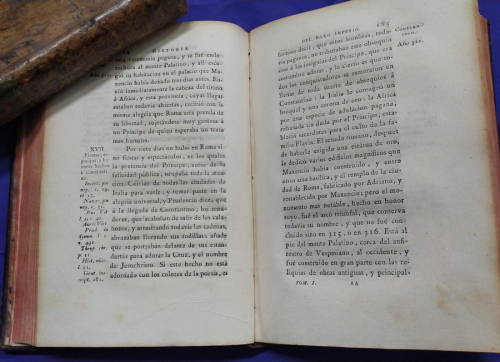 HISTORIA
ceremonia pagana, y se fué ende-
rechura al monte Palatino, y allí esco-
gió su habitacion en el palacio que Ma-
xencio habia dexado tres dias antes. En-
vió inmediatamente la cabeza del tirano
á Africa, y esta provincia, cuyas llagas
estaban todavia abiertas, recibió con la
misma alegria que Roma esta prenda de
su libertad, sujetándose muy gustosa á
un Príncipe de quien esperaba un trato
mas humano.
XVII.
Fiestas, y
Por siete dias no hubo en Roma si-
no fiestas y espectáculos, en los quales
la presencia del Príncipe, autor de la
felicidad pública, ocupaba toda la aten-
cion. Corrian de todas las ciudades de
Italia para verle, y tomar parte en la
alegria universal; y Prudencio dice, que
á la llegada de Constantino, los sena-
dores, que acababan de salir de los cala-
bozos, y arrastrando todavia las cadenas,
abrazaban llorando sus rodillas, añade
que se postraban delante de sus estan-
dartes para adorar la Cruz, y el nombre
de Jesuchristo. Si este hecho no está
adornado con los colores de la poesia, es
DEL BAXO IMPERIO. 185
forzoso decir, que estos hombres, toda-
via paganos, no tributaban este obsequio
sino á las insignias del Príncipe, que era
costumbre adorar; y lo cierto es que to-
dos los emperadores se esmeraron en
llenar de toda suerte de obsequios á
Constantino: la Italia le consagró un
broquel y una corona de oro: la Africa
por una especie de adulacion pagana,
rehusada sin duda por el Príncipe, esta-
bleció sacerdotes para el culto de la fa-
milia Flavia. El senado romano, despues
de haberle erigido una estatua de oro,
le dedicó varios edificios magníficos que
Maxencio habia construido, y entre
otros una basilica, y el templo de la ciu-
dad de Roma, fabricado por Adriano, y
renabacido por Maxencio; pero el mo-
numento mas notable, hecho en honor
suyo, fué el arco triunfal, que conserva
todavia su nombre, y que no fué con-
cluido sino en 315, ó en 316. Está al
pie del monte Palatino, cerca del anfi-
teatro de Vespasiano, al occidente, y
fué construido en gran parte con las re-
liquias de obras antiguas, y principal-
TOM. I. AA
Año 312.